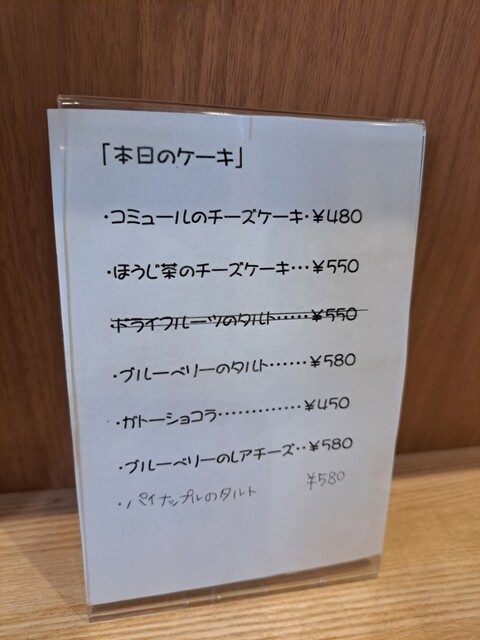 「本日のケーキ」
・コミュールのチーズケーキ・¥480
・ほうじ茶のチーズケーキ・・・¥550
・ドライフルーツのタルト・・・・・¥550
・ブルーベリーのタルト・・・・・・¥580
・ガトーショコラ・・・・・・・・・・・・・¥450
・ブルーベリーのレアチーズ・・¥580
・パイナップルのタルト ¥580